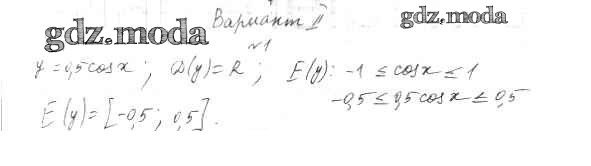 Вариант II
gdz.moda
gdz.moda
№1
y = 0,5 cos x ; D(y) = R ; E(y): -1 ≤ cos x ≤ 1
-0,5 ≤ 0,5 cos x ≤ 0,5
E(y) = [-0,5 ; 0,5].